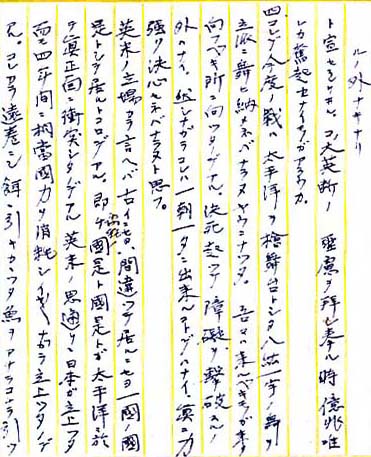 ルノ外ナキナリ
ト宣セラル。コノ大英断ノ聖慮ヲ拝シ奉ル時億兆唯
レカ奮起セナイモノガアラウカ。
四、コレデ今度ノ戦ハ太平洋ヲ檜舞台トシタ八紘一宇ノ舞ヲ
立派ニ舞ヒ納メネバナラヌヤウニナツタ。吾々ハ来ルベキモノガ来タ
向フベキ所ニ向ツタノデアル。決死起ツテ障礙ヲ撃破スルノ
外ハナイ。然シナガラコレハ一朝一夕ニ出来ルコトデハナイ、真ニ力
強イ決心ヲセネバナラヌト思フ。
英米ノ立場カラ言ヘバ古イニセヨ間違ツテ居ルニセヨ一国ノ国
是トシテ居ルトコロデアル。即チ国是ト国是トガ太平洋ニ於
テ真正面ニ衝突シタノデアル 英米ノ思通リ日本ガ立上ツタ
而モ四年間ニ相当国力ヲ消耗シ 乍ラ立上ツタノデ
アル。コレカラ遠巻キニシ餌ニ引キカカツタ魚ヲアチラコチラ引ツ